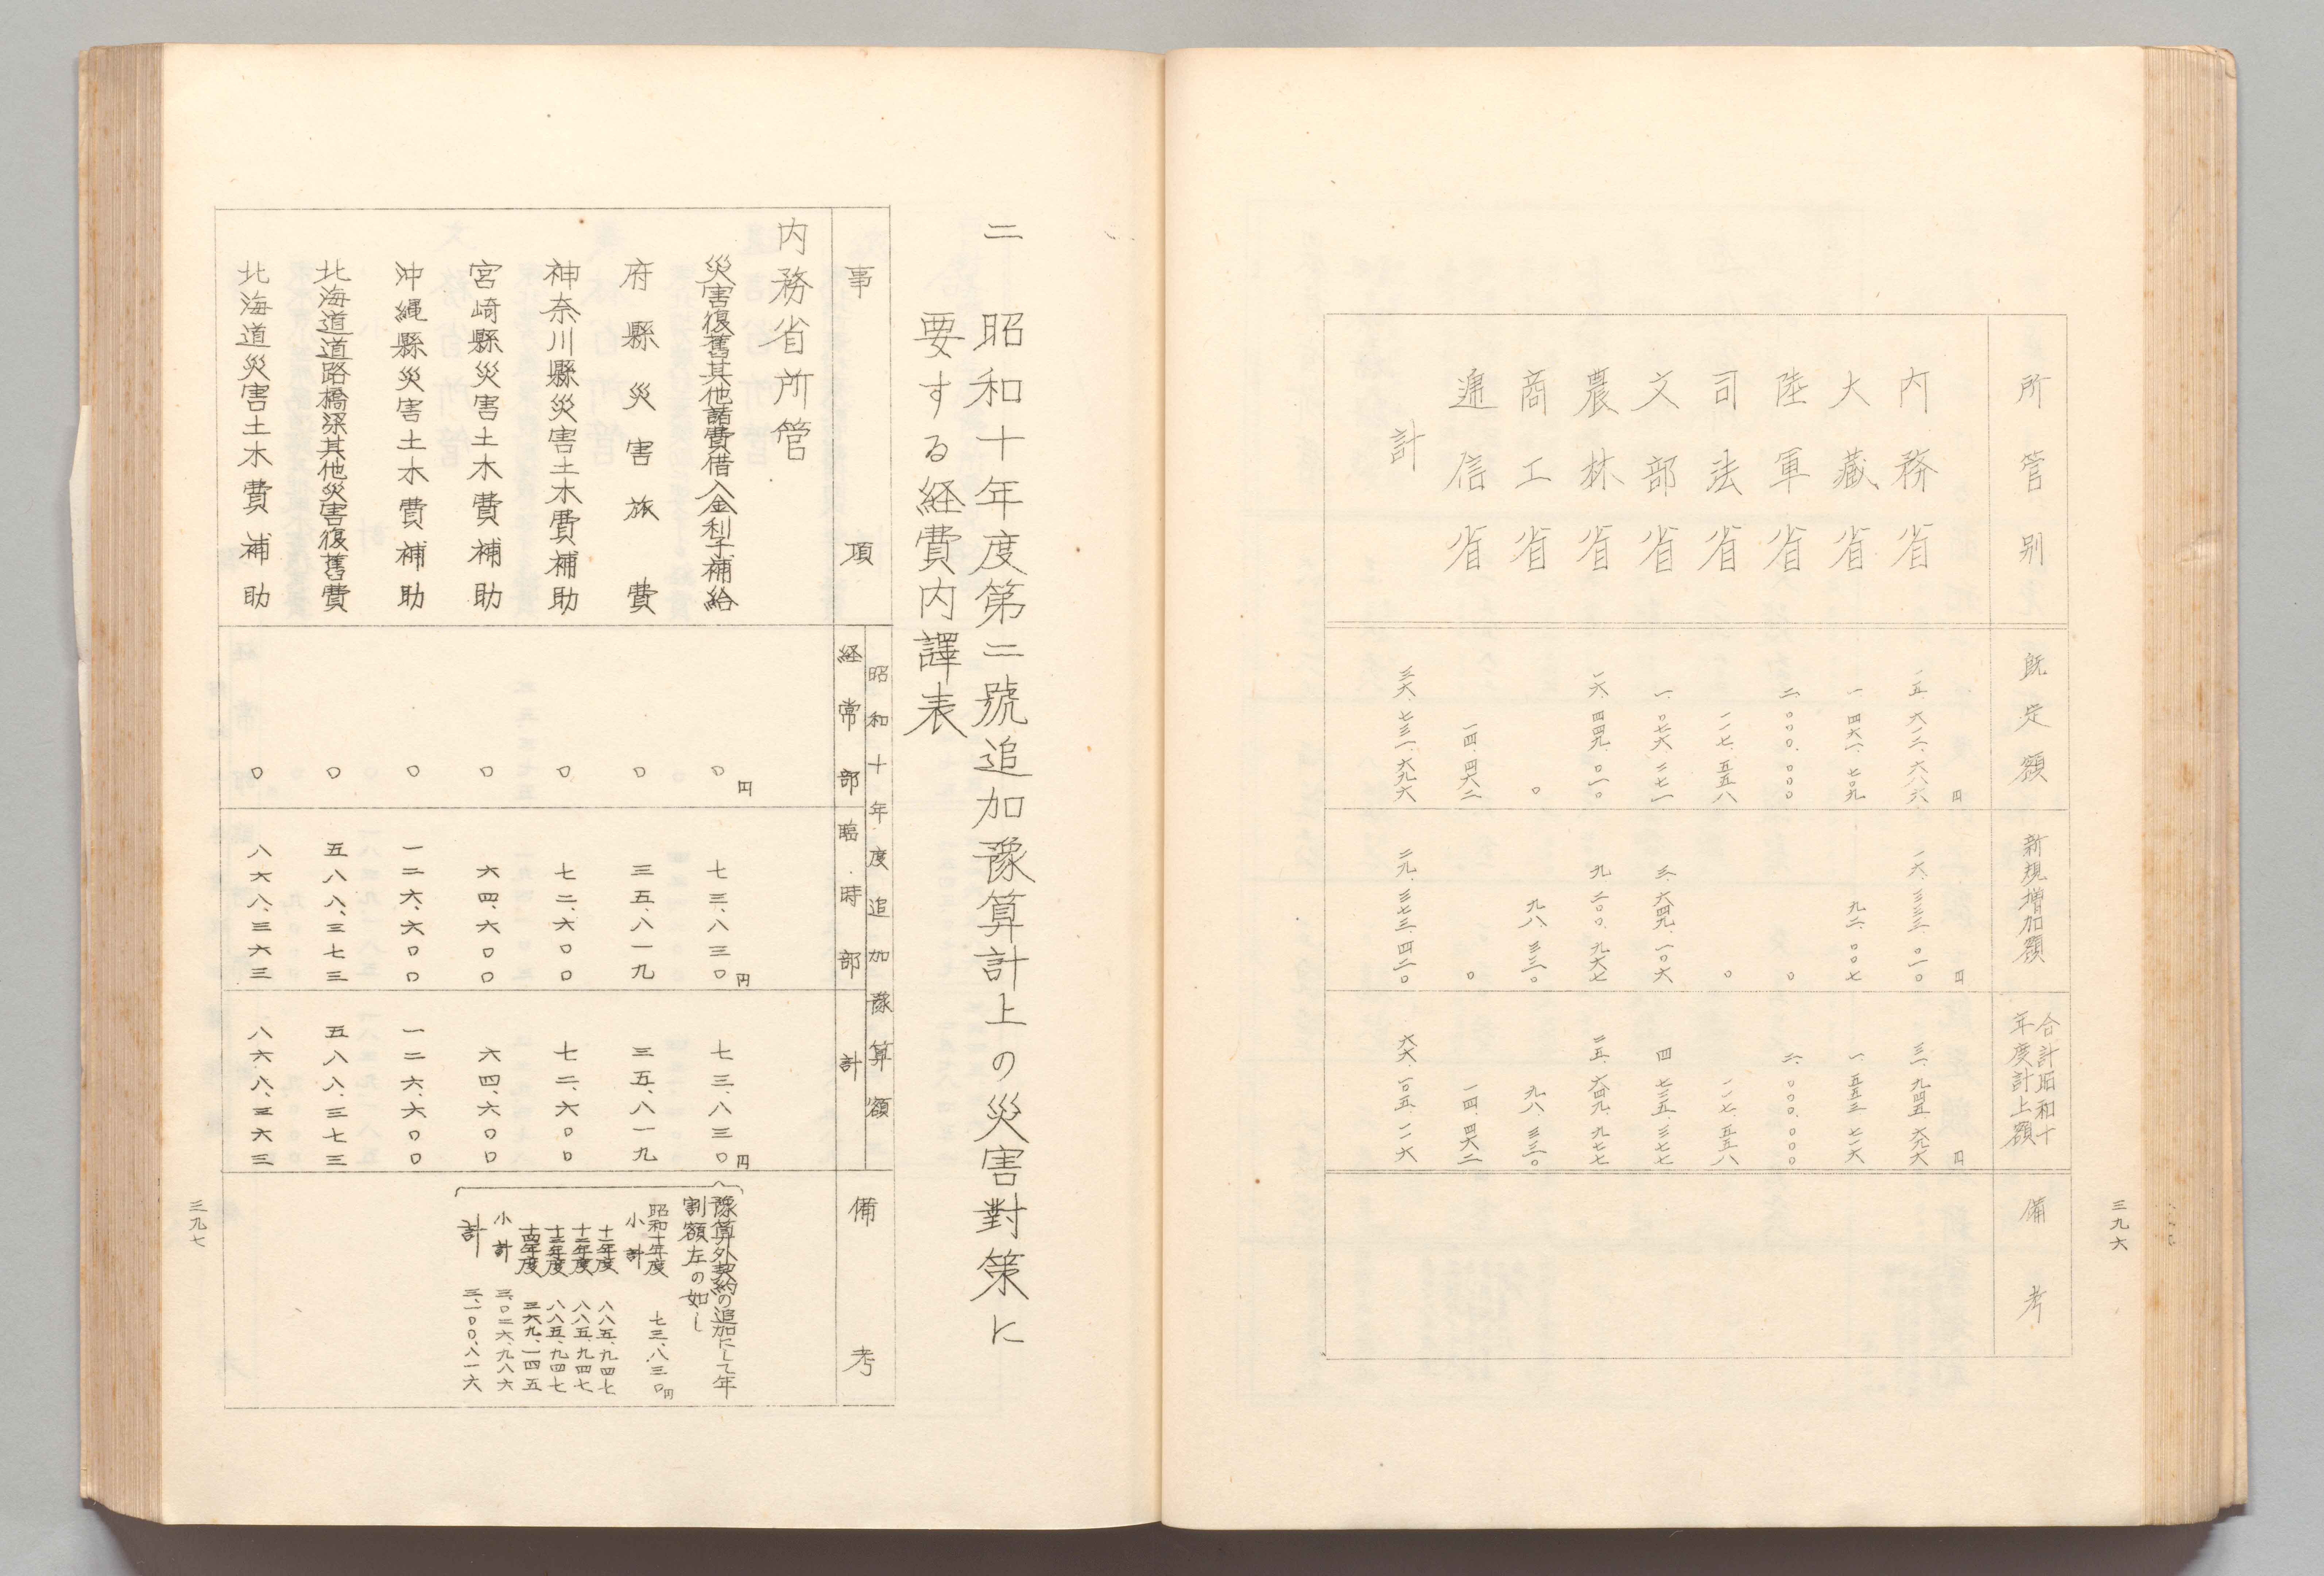 三九六
所管別 既定額 新規増加額 合計昭和十年度計上額 備考
円 円 円
内務省 一五、六一二、六八六 一六、三三三、〇一〇 三一、九四五、六九六
大藏省 一、四六一、七〇九 九二、〇〇七 一、五五三、七一六
陸軍省 二、〇〇〇、〇〇〇 〇 二、〇〇〇、〇〇〇
司法省 一一七、五五八 〇 一一七、五五八
文部省 一、〇七六、二七一 三、六四九、一〇六 四、七二五、三七七
農林省 一六、四四九、〇一〇 九、二〇〇、九六七 二五、六四九、九七七
商工省 〇 九八、三三〇 九八、三三〇
逓信省 一四、四六二 〇 一四、四六二
計 三六、七三一、六九六 二九、三七三、四二〇 六六、一〇五、一一六
二 昭和十年度第二號追加豫算計上の災害對策に
要する経費内譯表
事項 昭和十年度追加豫算額 備考
経常部 臨時部 計
内務省所管
円 円 円
災害復舊其他諸費借入金利子補給 〇 七三、八三〇 七三、八三〇
府縣災害旅費 〇 三五、八一九 三五、八一九
神奈川縣災害土木費補助 〇 七二、六〇〇 七二、六〇〇
宮崎縣災害土木費補助 〇 六四、六〇〇 六四、六〇〇
沖縄縣災害土木費補助 〇 一二六、六〇〇 一二六、六〇〇
北海道道路橋梁其他災害復舊費 〇 五八八、三七三 五八八、三七三
北海道災害土木費補助 〇 八六八、三六三 八六八、三六三
豫算外契約の追加にして年
割額左の如し
昭和十年度 七三、八三〇円
小計
十一年度 八八五、九四七
十二年度 八八五、九四七
十三年度 八八五、九四七
十四年度 三六九、一四五
小計 三、〇二六、九八六
計 三、一〇〇、八一六
三九七